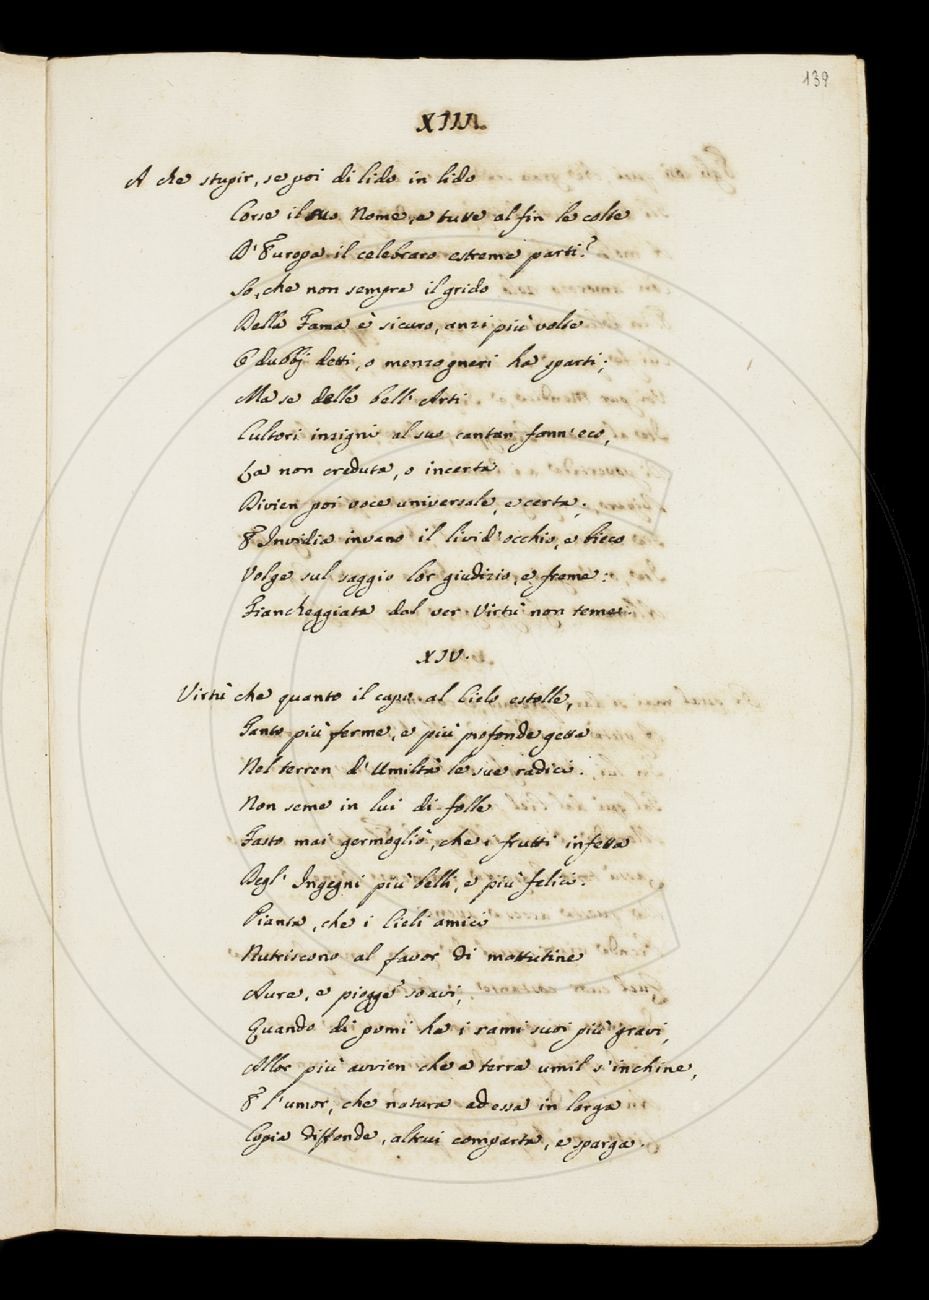 139
XIII.
A che stupir, se poi di lido in lido
Corse il suo Nome, e tutte al fin le colte
D' Europa il celebraro estreme parti?
So, che non sempre il grido
Della Fama è sicuro, anzi più volte
O dubbj detti, o menzogneri ha sparti;
Ma se delle bell' Arti
Cultori insigni al suo cantar fann' eco,
La non creduta, o incerta
Divien poi voce universale, e certa;
E Invidia invano il livid' occhio, e bieco
Volge sul saggio lor giudizio, e freme:
Fiancheggiata dal ver Virtù non teme.
XIV.
Virtù che quanto il capo al Cielo estolle,
Tanto più ferme, e più profonde getta
Nel terren d' Umiltà le sue radici.
Non seme in lui di folle
Fasto mai germogliò, che i frutti infetta
Degl' Ingegni più belli, e più felici.
Pianta, che i Cieli amici
Nutriscono al favor di mattutine
Aure, e piogge soavi,
Quando di pomi ha i rami suoi più gravi,
Allor più avvien che a terra umil s' inchine,
E l' umor, che natura ad essa in larga
Copia diffonde, altrui comparta, e sparga.